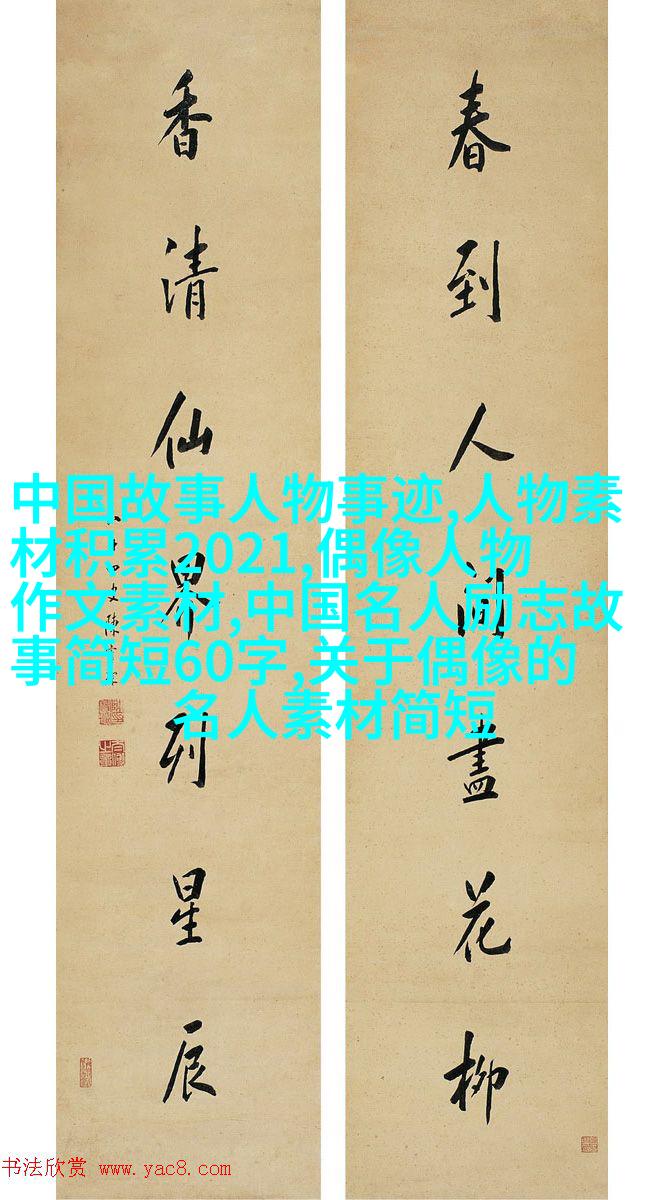 春到人间尽花柳
香清仙界列星辰
中国故事人物事迹,人物素
材积累2021,偶像人物
作文素材,中国名人励志故
事简短60字,关于偶像的
名人素材简短
书法欣赏 www.yac8.com